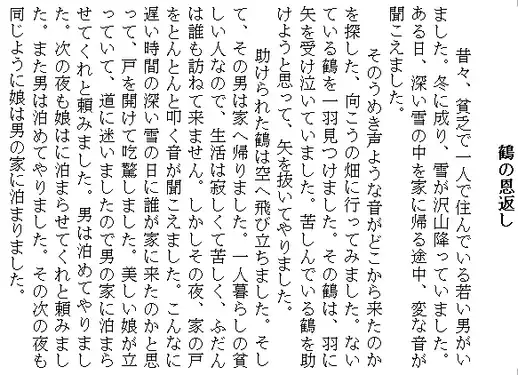 鶴の恩返し
昔々、貧乏で一人で住んでいる若い男がい
ました。冬に成り、雪が沢山降っていました。
ある日、深い雪の中を家に帰る途中、変な音が
聞こえました。
そのうめき声ような音がどこから来たのか
を探した、向こうの畑に行ってみました。ない
ている鶴を一羽見つけました。その鶴は、羽に
矢を受け泣いていました。苦しんでいる鶴を助
けようと思って、矢を抜いてやりました。
助けられた鶴は空へ飛び立ちました。そし
て、その男は家へ帰りました。一人暮らしの貧
しい人なので、生活は寂しくて苦しく、ふだん
は誰も訪ねて来ません。しかしその夜、家の戸
をとんとんと叩く音が聞こえました。こんなに
遅い時間の深い雪の日に誰が家に来たのかと思
って、戸を開けて吃驚しました。美しい娘が立
っていて、道に迷いましたので男の家に泊まら
せてくれと頼みました。男は泊めてやりまし
た。次の夜も娘はに泊まらせてくれと頼みまし
た。また男は泊めてやりました。その次の夜も
同じように娘は男の家に泊まりました。